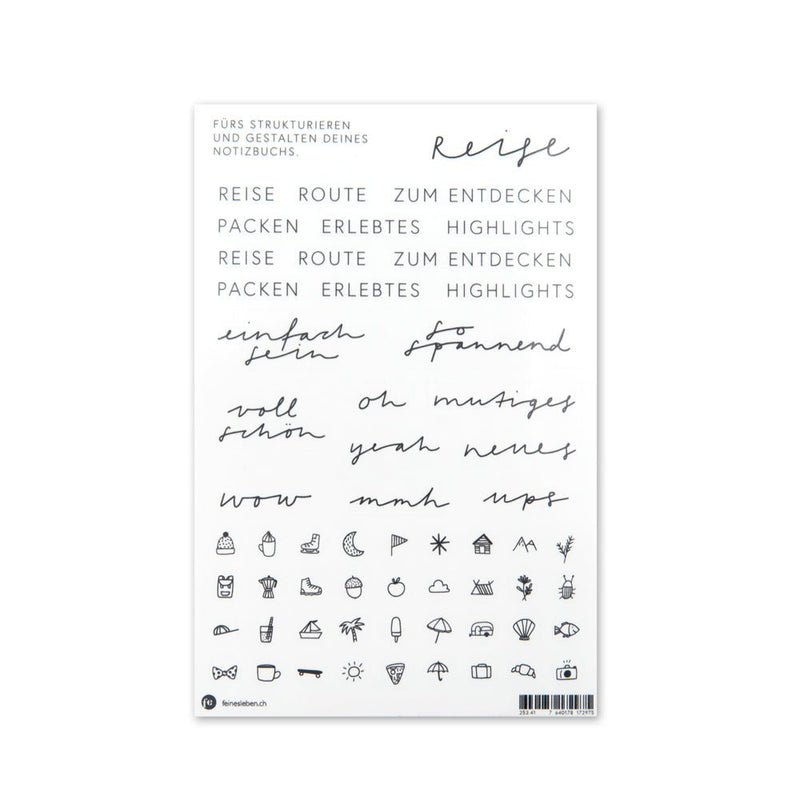 FÜRS STRUKTURIEREN
UND GESTALTEN DEINES
NOTIZBUCHS.
Reise
REISE ROUTE ZUM ENTDECKEN
PACKEN ERLEBTES HIGHLIGHTS
REISE ROUTE ZUM ENTDECKEN
PACKEN ERLEBTES HIGHLIGHTS
einfach
sein
so
spannend
voll
schön
oh mutiges
yeah neues
wow mmh ups
fe feinesleben.ch
252 41 7 640178 172975